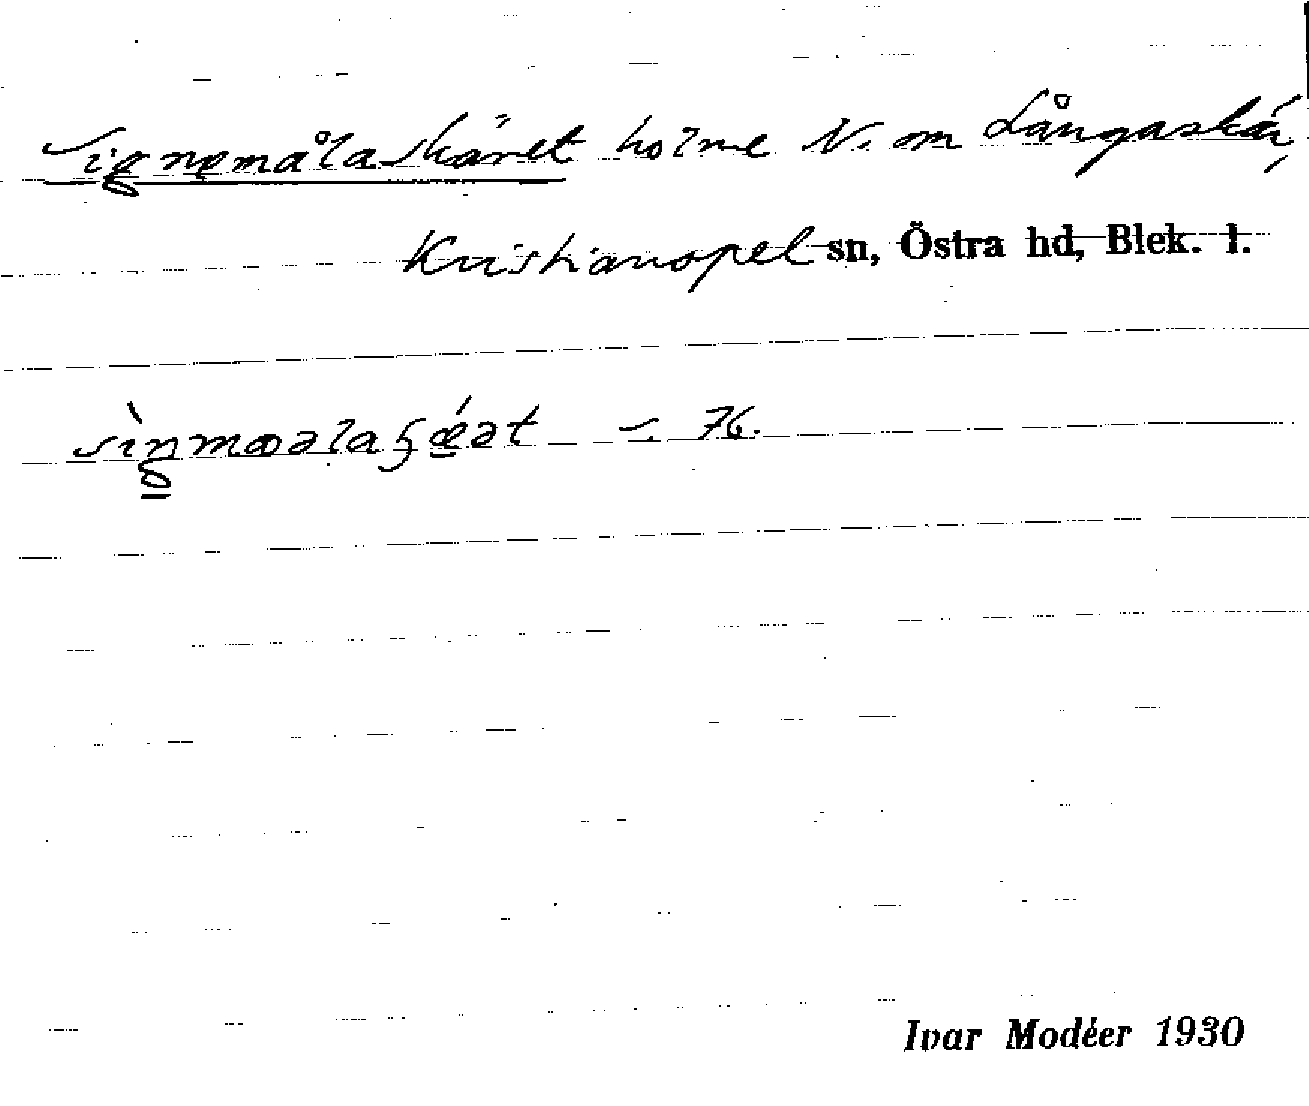 Signemålaskäret holme N. om Långaskär,
Kristianopel sn, Östra hd, Blek. l.
s. 76.
Ivar Modéer 1930